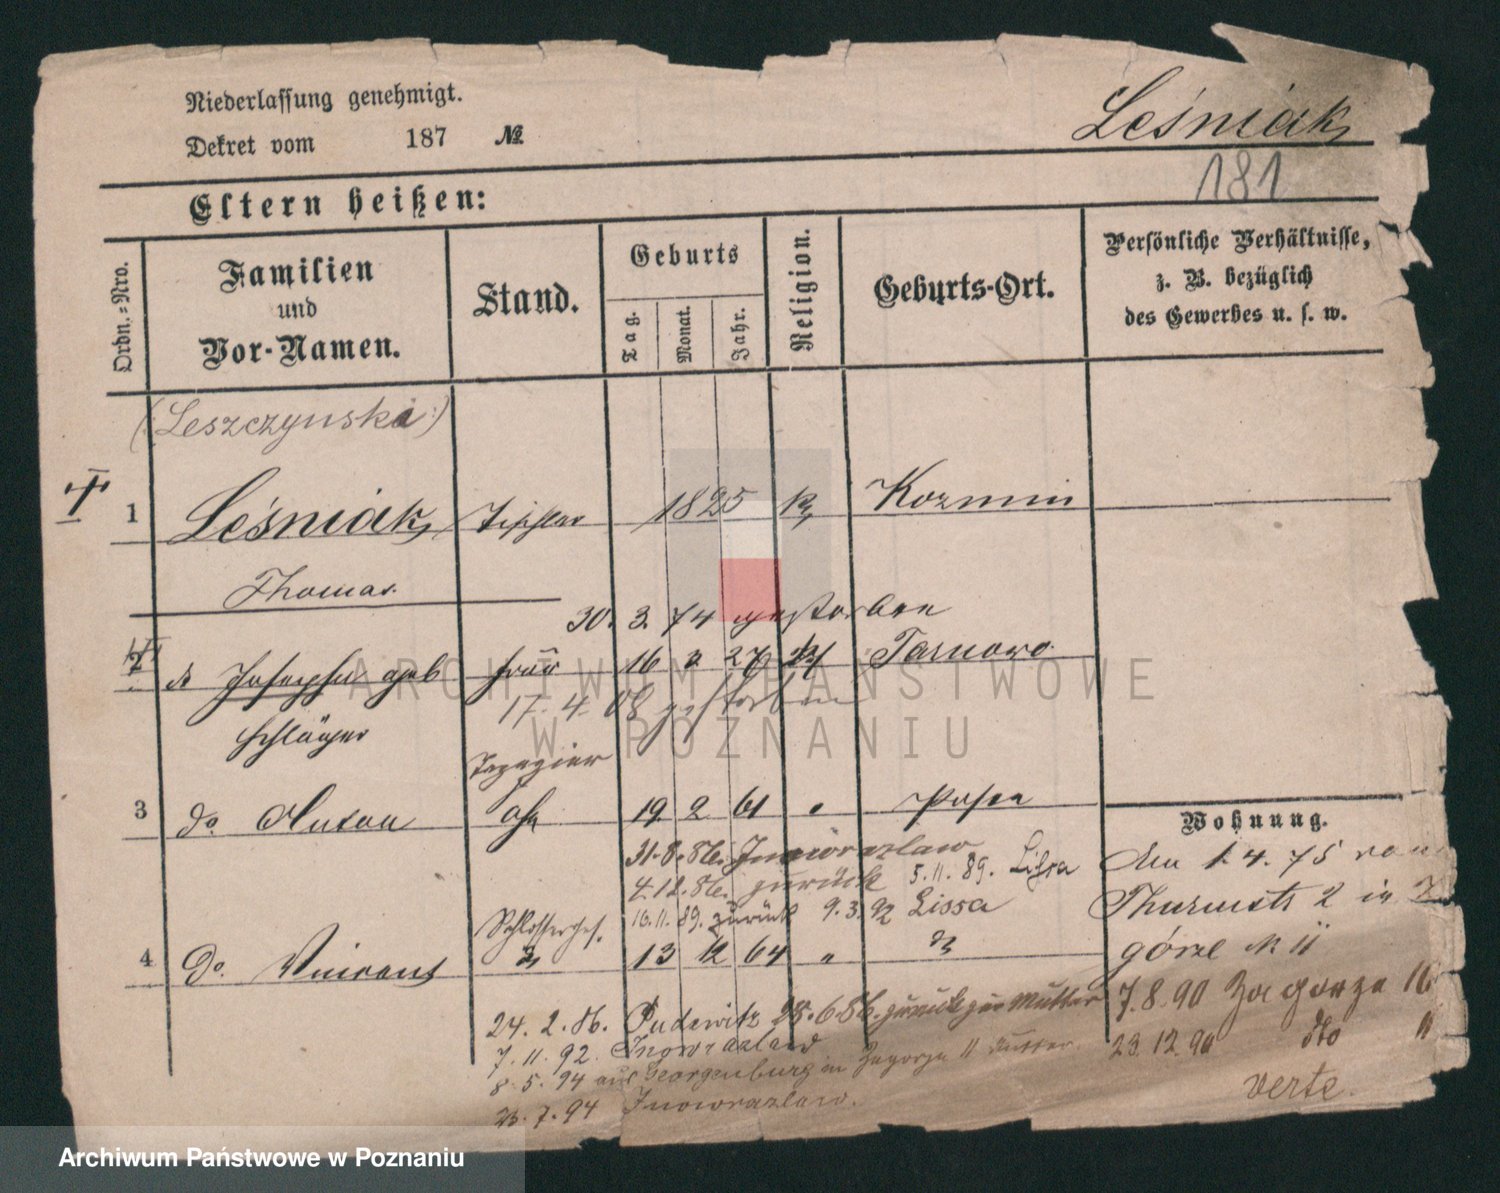 Niederlassung genehmigt.
Dekret vom 187 №
Leśniak
181
Eltern heißen:
Ordn.-Nro.
Familien
und
Vor-Namen.
Stand.
Geburts
Tag.
Monat.
Jahr.
Religion.
Geburts-Ort.
Persönliche Verhältnisse,
z. B. bezüglich
des Gewerbes u. s. w.
(Leszczynski)
1 Leśniak Tischler 1825 k Kozmin
Thomas
30. 3. 74 gestorben
2 Josepha geb Frau 16 3 27 Tarnowo
17. 4. 08 gestorben
Schläger
Tapezier
3 do Anton 19 2 61 " Posen
Wohnung.
31.8.86. Inowrazlaw
4.12.86. zurück 5.11.89. Lissa
10.11.89. zurück 9.3.92 Lissa
Den 1.4.75 von
Thurmstr 2 in
górze N 11
Schlosserges.
4 do Vincent 13 12 64 "
24. 2. 86. Pudewitz 28.6.86. zurück zur Mutter
7. 11. 92. Inowrazlaw
8. 5. 94 aus Georgenburg in Zagorze 11 Mutter.
7. 94 Inowrazlaw.
7.8.90 Zagorze 16
23.12.90 dto 11
verte.
ARCHIWUM PAŃSTWOWE
W POZNANIU
Archiwum Państwowe w Poznaniu